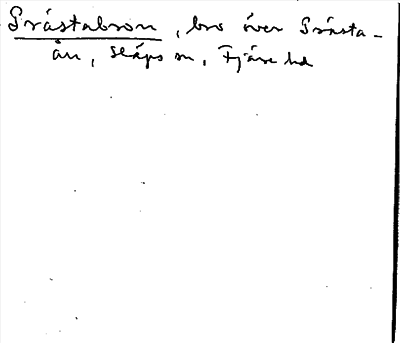 Pråstabron, bro över Pråsta-
ån, Släps sn, Fjäre hd